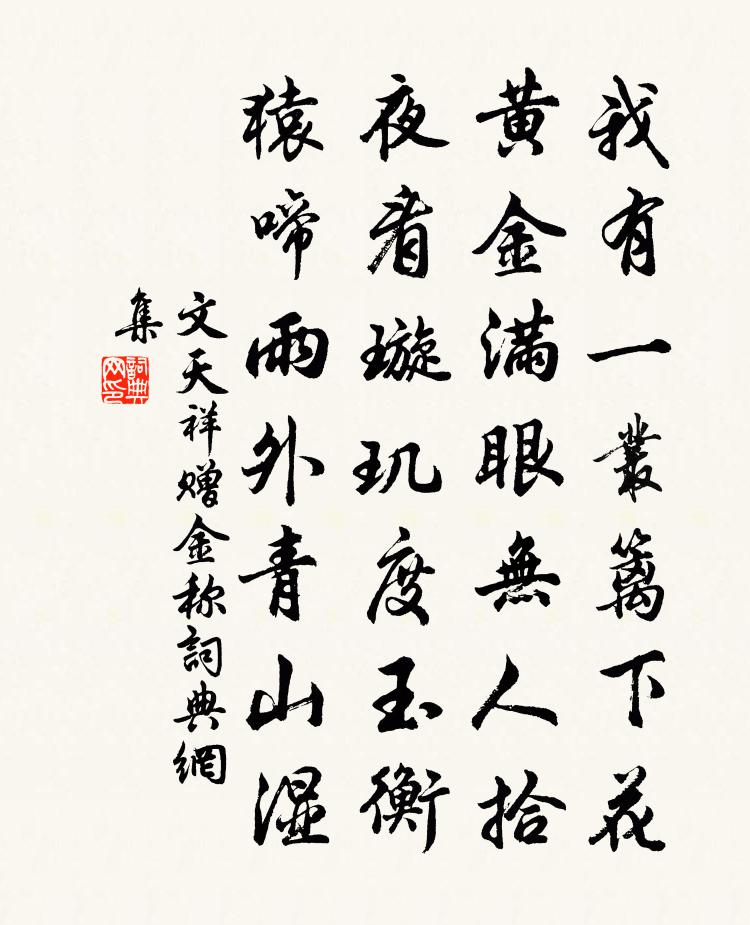 我有一叢籬下花
黄金滿眼無人拾
夜看璇玑度玉衡
猿啼雨外青山湿
文天祥赠金称詞典網
集
詞典网印